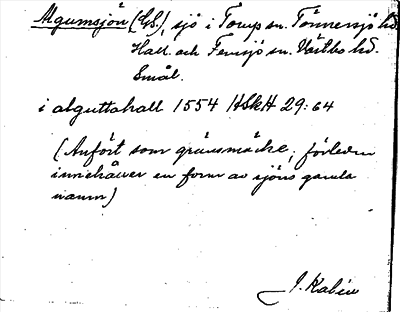 Algumsjön (GS.), sjö i Torup sn. Tönnersjö hd.
Hall. och Femsjö sn. Västbo hd.
Smål.
i alguttahall 1554 HSkH 29:64
(Anfört som gränsmärke, förleden
innehåller en form av sjöns gamla
namn)
J. Kalén